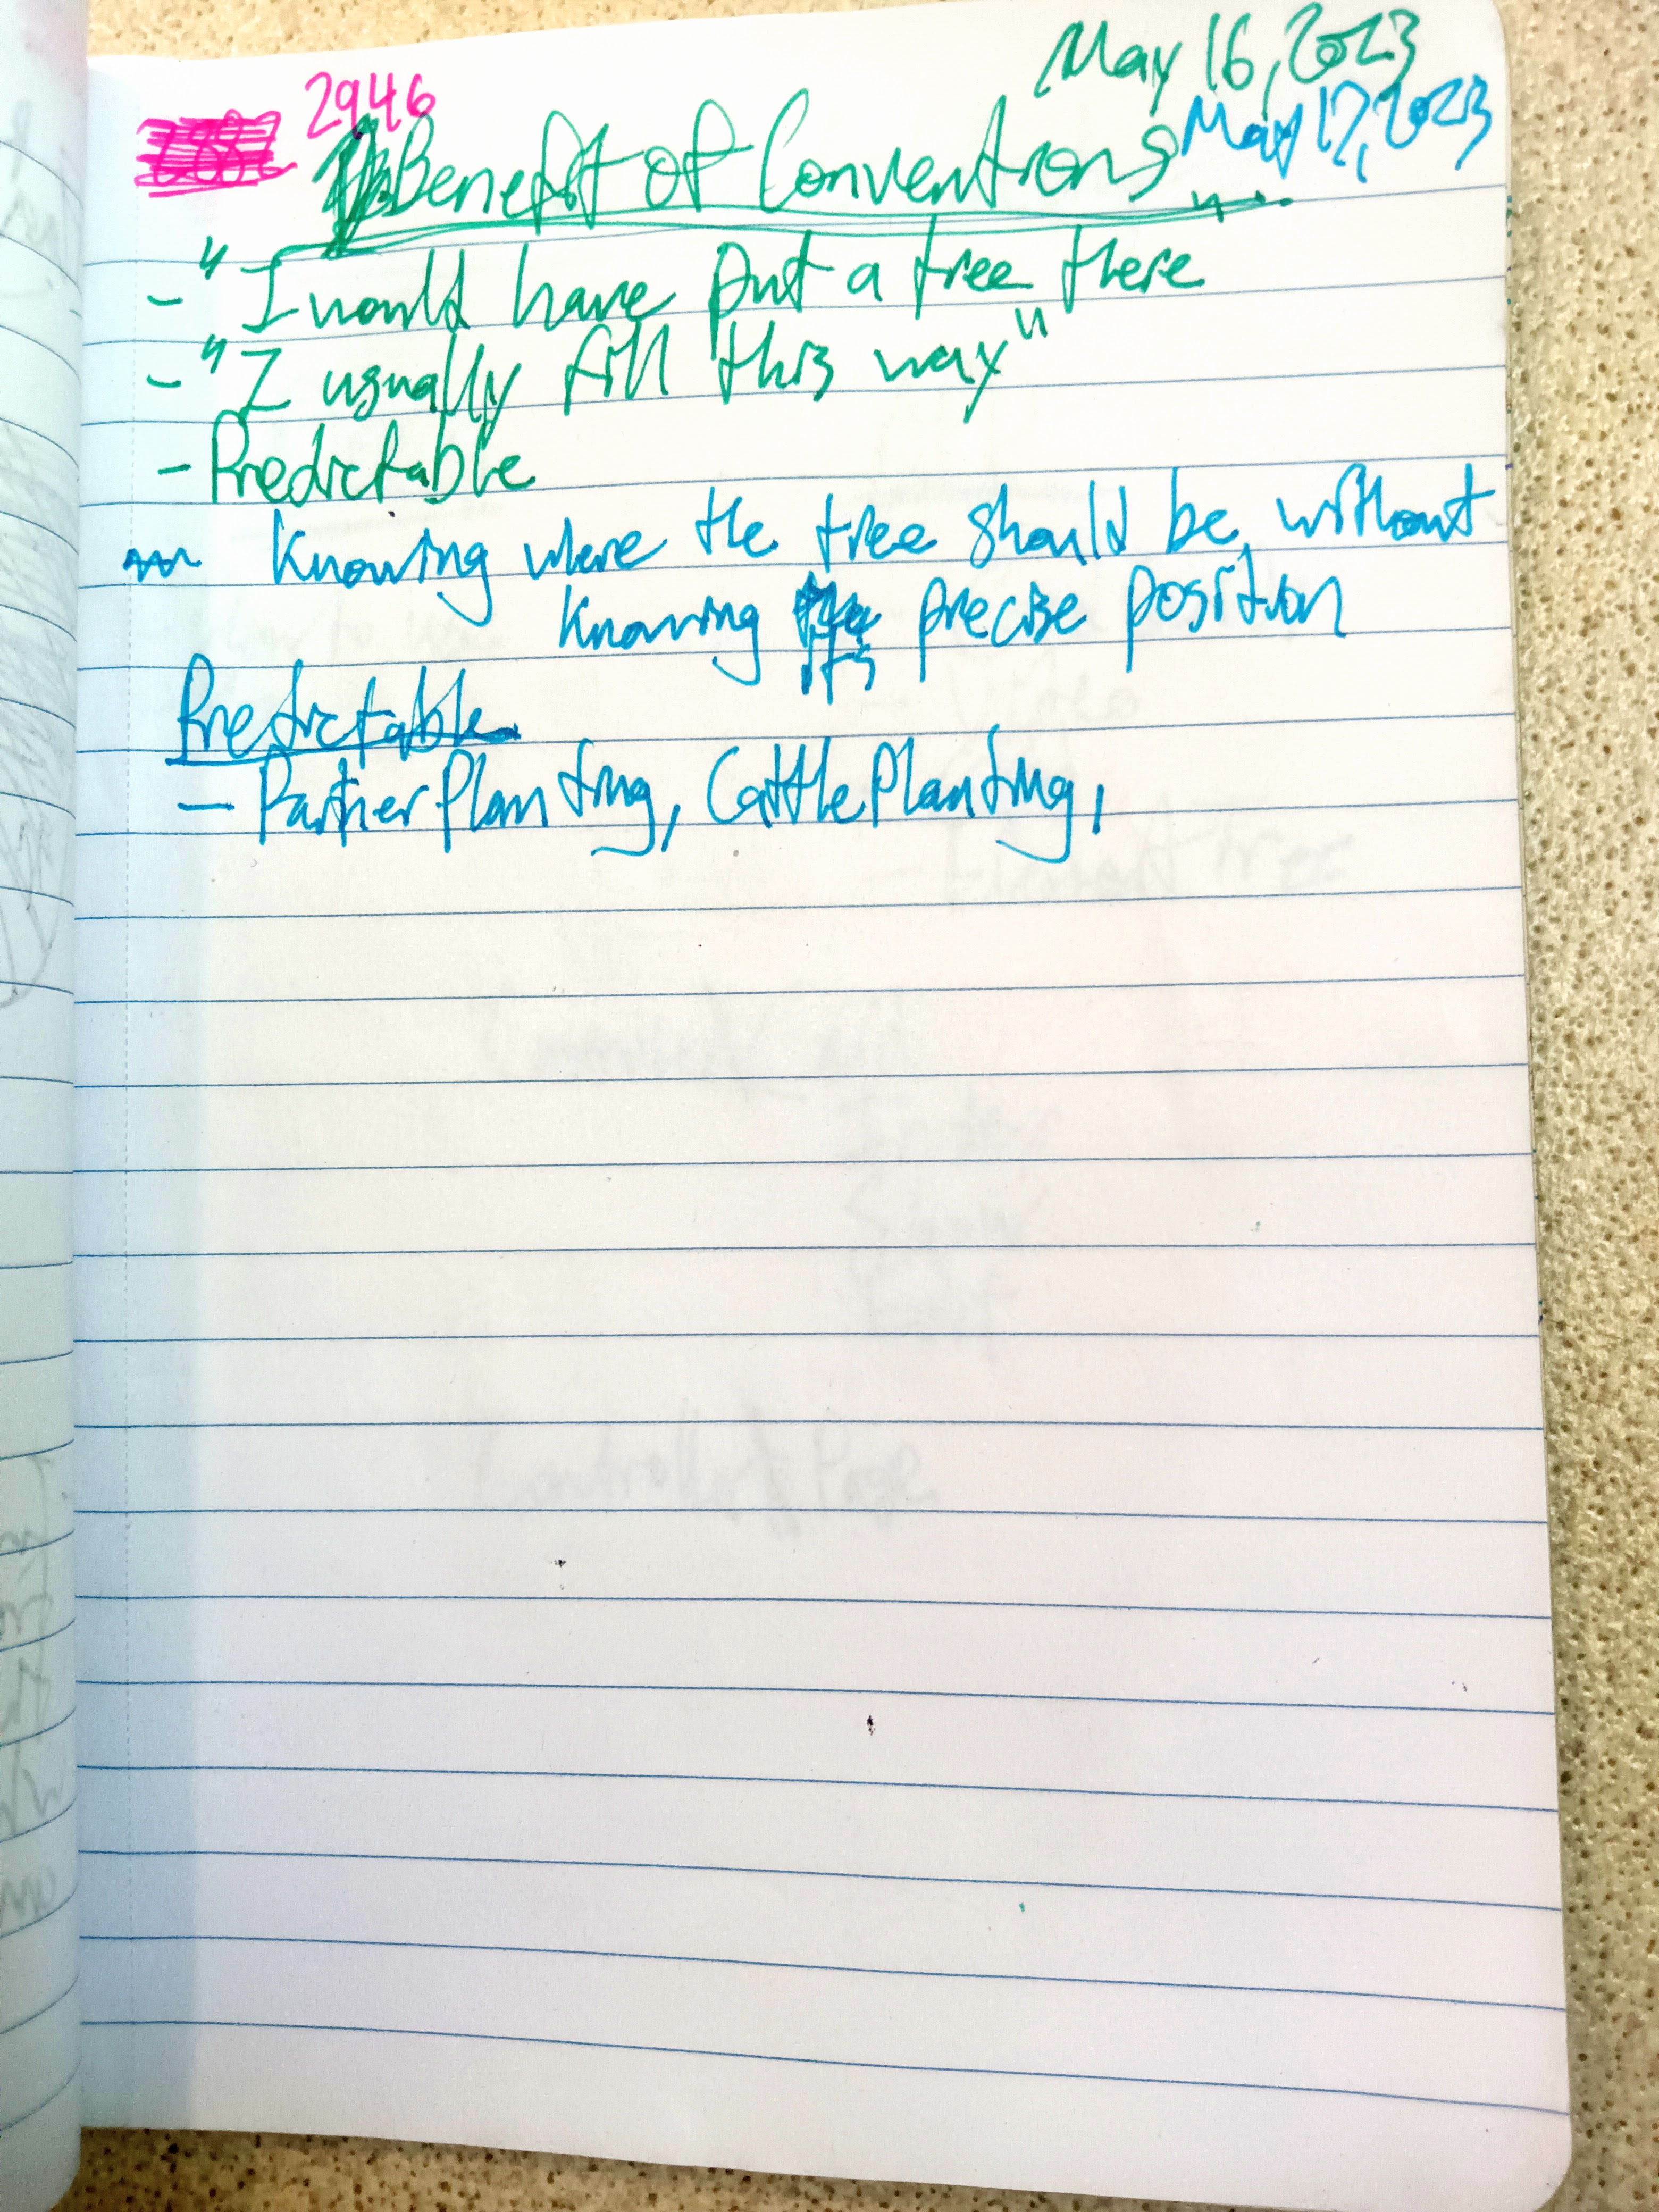 May 16, 2023
2946
May 17, 2023
Benefit of Conventions...
- "I would have put a tree there
- "I usually fill this way"
- Predictable
Knowing where the tree should be, without
knowing its precise position
Predictable
- Partner Planting, Cattle Planting,